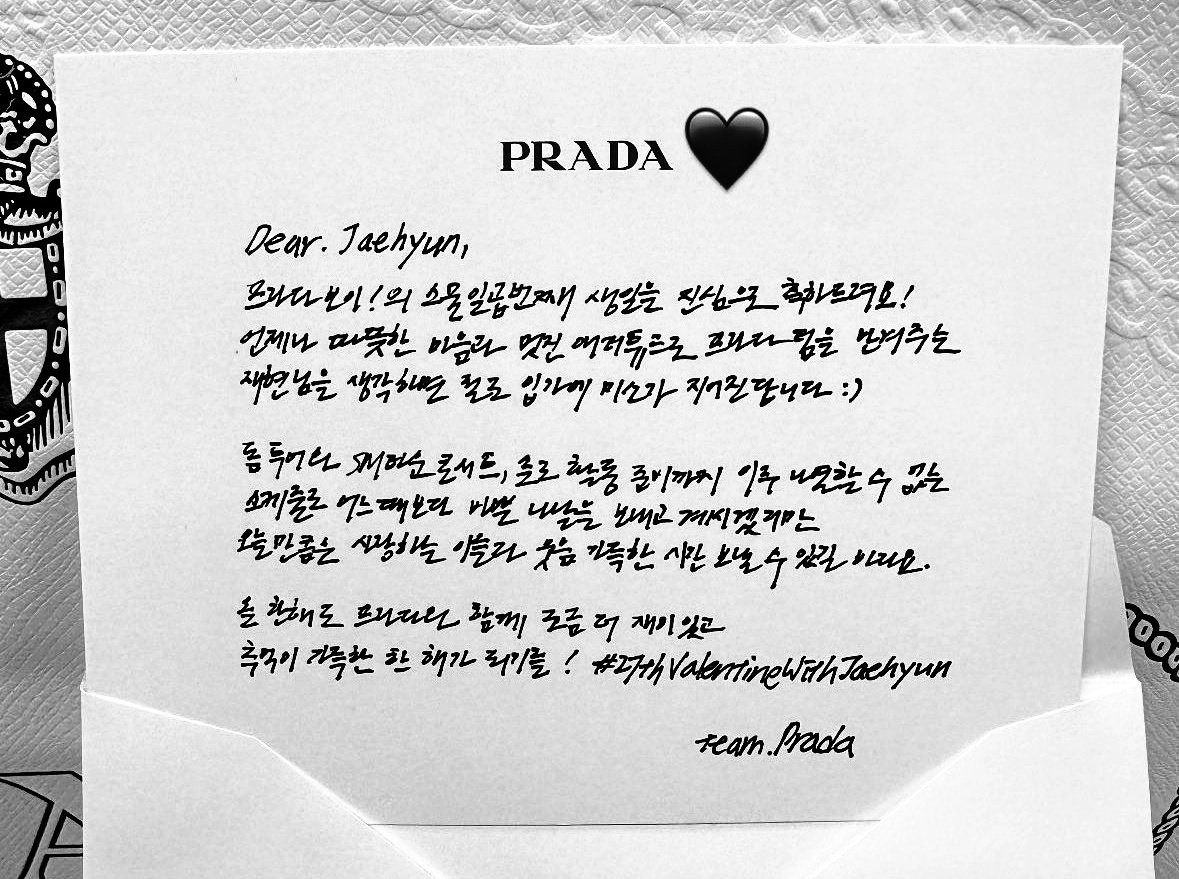 PRADA
Dear. Jaehyun,
프라다보이!의 스물일곱번째 생일을 진심으로 축하드려요!
언제나 따뜻한 마음과 멋진 애티튜드로 프라다팀을 반겨주는
재현님을 생각하면 절로 입가에 미소가 지어진답니다 :)
돔투어와 재현순 콘서트, 솔로 활동 준비까지 이루 나열할 수 없는
스케줄로 어느때보다 바쁜 나날을 보내고 계시겠지만
오늘만큼은 사랑하는 이들과 웃음 가득한 시간 보낼 수 있길 바라요.
올 한해도 프라다와 함께 조금 더 재미있고
추억이 가득한 한 해가 되기를! #27thValentineWithJaehyun
team.Prada